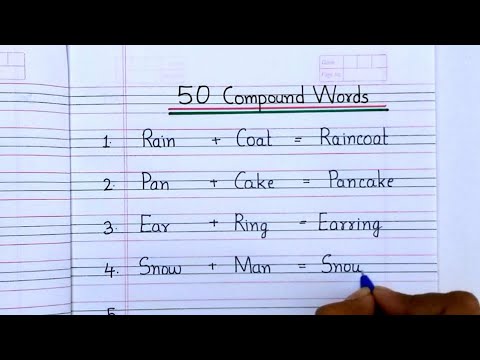 50 Compound Words
1. Rain + Coat = Raincoat
2. Pan + Cake = Pancake
3. Ear + Ring = Earring
4. Snow + Man = Snou
5.